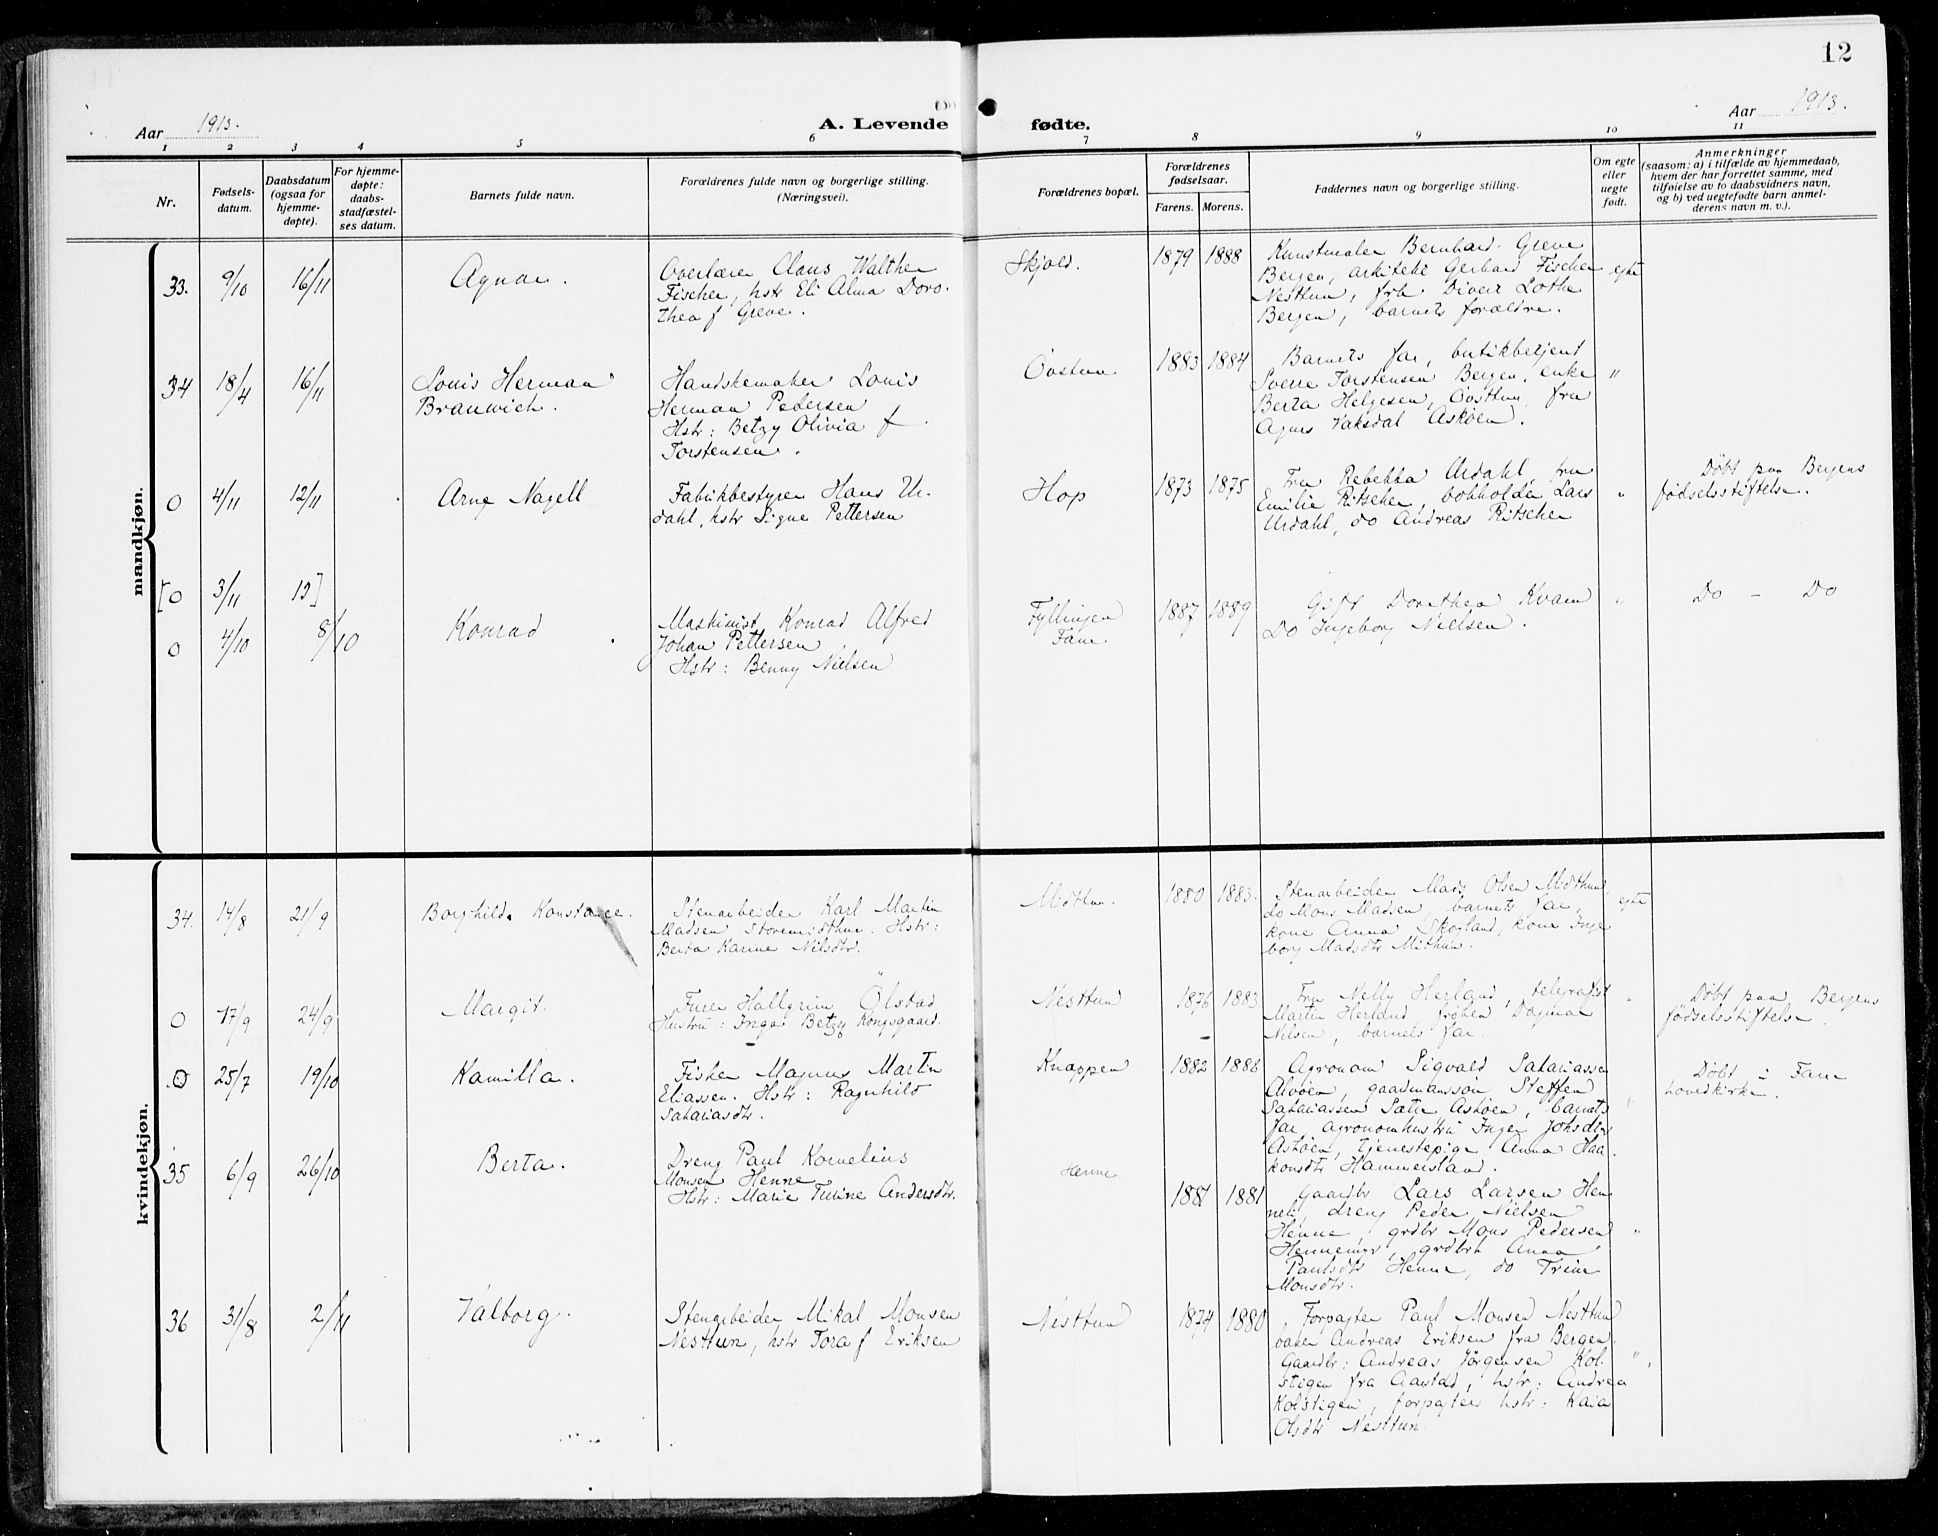 12
Aar 1913.
A. Levende fødte.
Aar 1913.
1 2 3 4 5 6 7 8 9 10 11
Nr.
Fødsels-
datum.
Daabsdatum
(ogsaa for
hjemme-
døpte).
For hjemme-
døpte:
daabs-
stadfæstel-
ses datum.
Barnets fulde navn.
Forældrenes fulde navn og borgerlige stilling.
(Næringsvei).
Forældrenes bopæl.
Forældrenes
fødselsaar.
Farens. Morens.
Faddernes navn og borgerlige stilling.
Om egte
eller
uegte
født.
Anmerkninger
(saasom: a) i tilfælde av hjemmedaab,
hvem der har forrettet samme, med
tilføielse av to daabsvidners navn,
og b) ved uegtefødte barn anmel-
derens navn m. v.).
mandkjøn.
33. 9/10 16/11
Agnar.
Overlærer Claus Walther
Fischer, hstr Eli Alma Doro-
thea f Greve.
Skjold.
1879 1888
Kunstmaler Bernhard Greve
Bergen, arkitekt Gerhard Fischer
Nesttun, frk Divert Lothe
Bergen, barnets forældre.
egte
34 18/4 16/11
Louis Herman
Branwich.
Handskemaker Louis
Herman Pedersen
Hstr: Betzy Olivia f
Torstensen.
Øvstun
1883 1884
Barnets far, butikbetjent
Sverre Torstensen Bergen, enke
Berta Helgesen, Øvsttun, fru
Agnes Vaksdal Askøen.
"
0 4/11 12/11
Arne Nagell
Fabrikbestyrer Hans Ur-
dahl, hstr Signe Pettersen
Hop
1873 1875
Fru Rebekka Urdahl, fru
Emilie Ritscher, bokholder Lars
Urdahl, do Andreas Ritscher
"
Døbt paa Bergens
fødselsstiftelse.
[0 3/11 13]
0 4/10 8/10
Konrad
Maskinist Konrad Alfred
Johan Pettersen
Hstr: Benny Nielsen
Fyllingen
Fane.
1887 1889
Gift Dorethea Kvam
Do Ingeborg Nielsen.
"
Do – Do
kvindekjøn.
34. 14/8 21/9
Borghilda Konstance.
Stenarbeider Karl Martin
Madsen Storemidthun. Hstr:
Berta Karine Nilsdtr.
Midttun.
1880 1883.
Stenarbeider Mads Olsen Midthun,
do Mons Madsen, barnets far,
kone Anna Skogland, kone Inge
borg Madsdtr Mithun.
egte
0 17/9 24/9
Margit.
Furer Hallgrim Ølstad
Hustru: Inga Betzy Kongsgaard.
Nesttun
1876 1883
Fru Nelly Herland, telegrafist
Martin Herland, frøken Dagmar
Nilsen, barnets far.
"
Døbt paa Bergens
fødselsstiftelse.
0 25/7 19/10
Kamilla.
Fisker Magnus Martin
Eliassen. Hstr: Ragnhild
Sakariasdtr.
Knappen
1882 1886
Agronom Sigvald Sakariassen
Alvøen, gaardmanssøn Steffen
Sakariassen Sætre Askøen, barnets
far, agronomhustru Inger Johsdtr
Askøen, tjenestepige Anna Haa-
konsdtr Hammersland.
"
Døbt i Fane
hovedkirke.
35 6/9 26/10
Berta.
Dreng Paul Kornelius
Monsen Henne
Hstr: Marie Turine Andersdtr.
Henne
1881 1881
Gaardbr Lars Larsen Hen
ne, dreng Peder Nielsen
Henne, grdbr Mons Pedersen
Hennemyr, grdbrk Anna
Paulsdtr Henne, do Trine
Monsdtr.
"
36 31/8 2/11
Valborg.
Stenarbeider Mikal Monsen
Nesttun, hstr Tora f Eriksen
Nesttun
1874 1880
Forpagter Paul Monsen Nesttun
Andreas Eriksen fra Bergen
Gaardbr: Andreas Jørgensen Kol-
stigen fra Aarstad, hstr: Andrea
Kolstigen, forpagters hstr: Kaia
Olsdtr Nesttun.
"